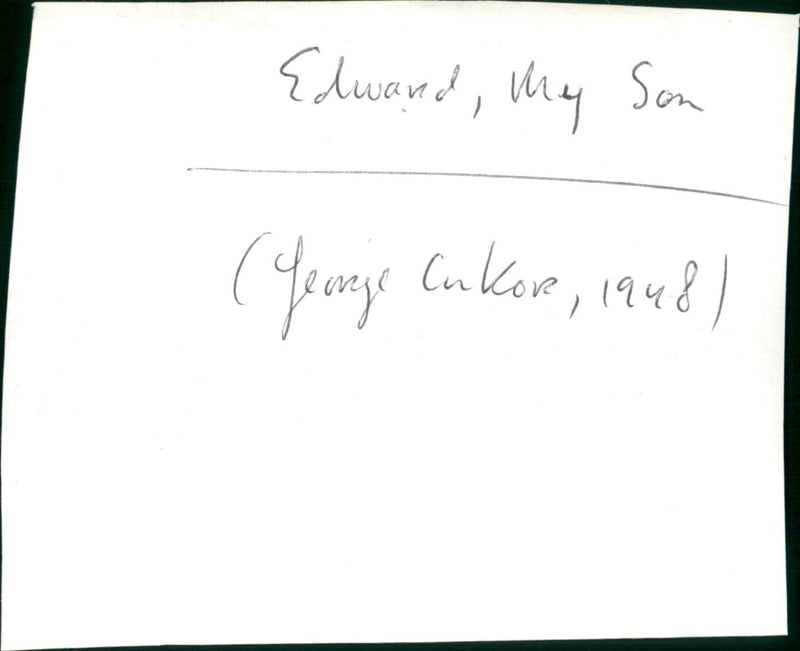 Edward, My Son
(George Cukor, 1948)